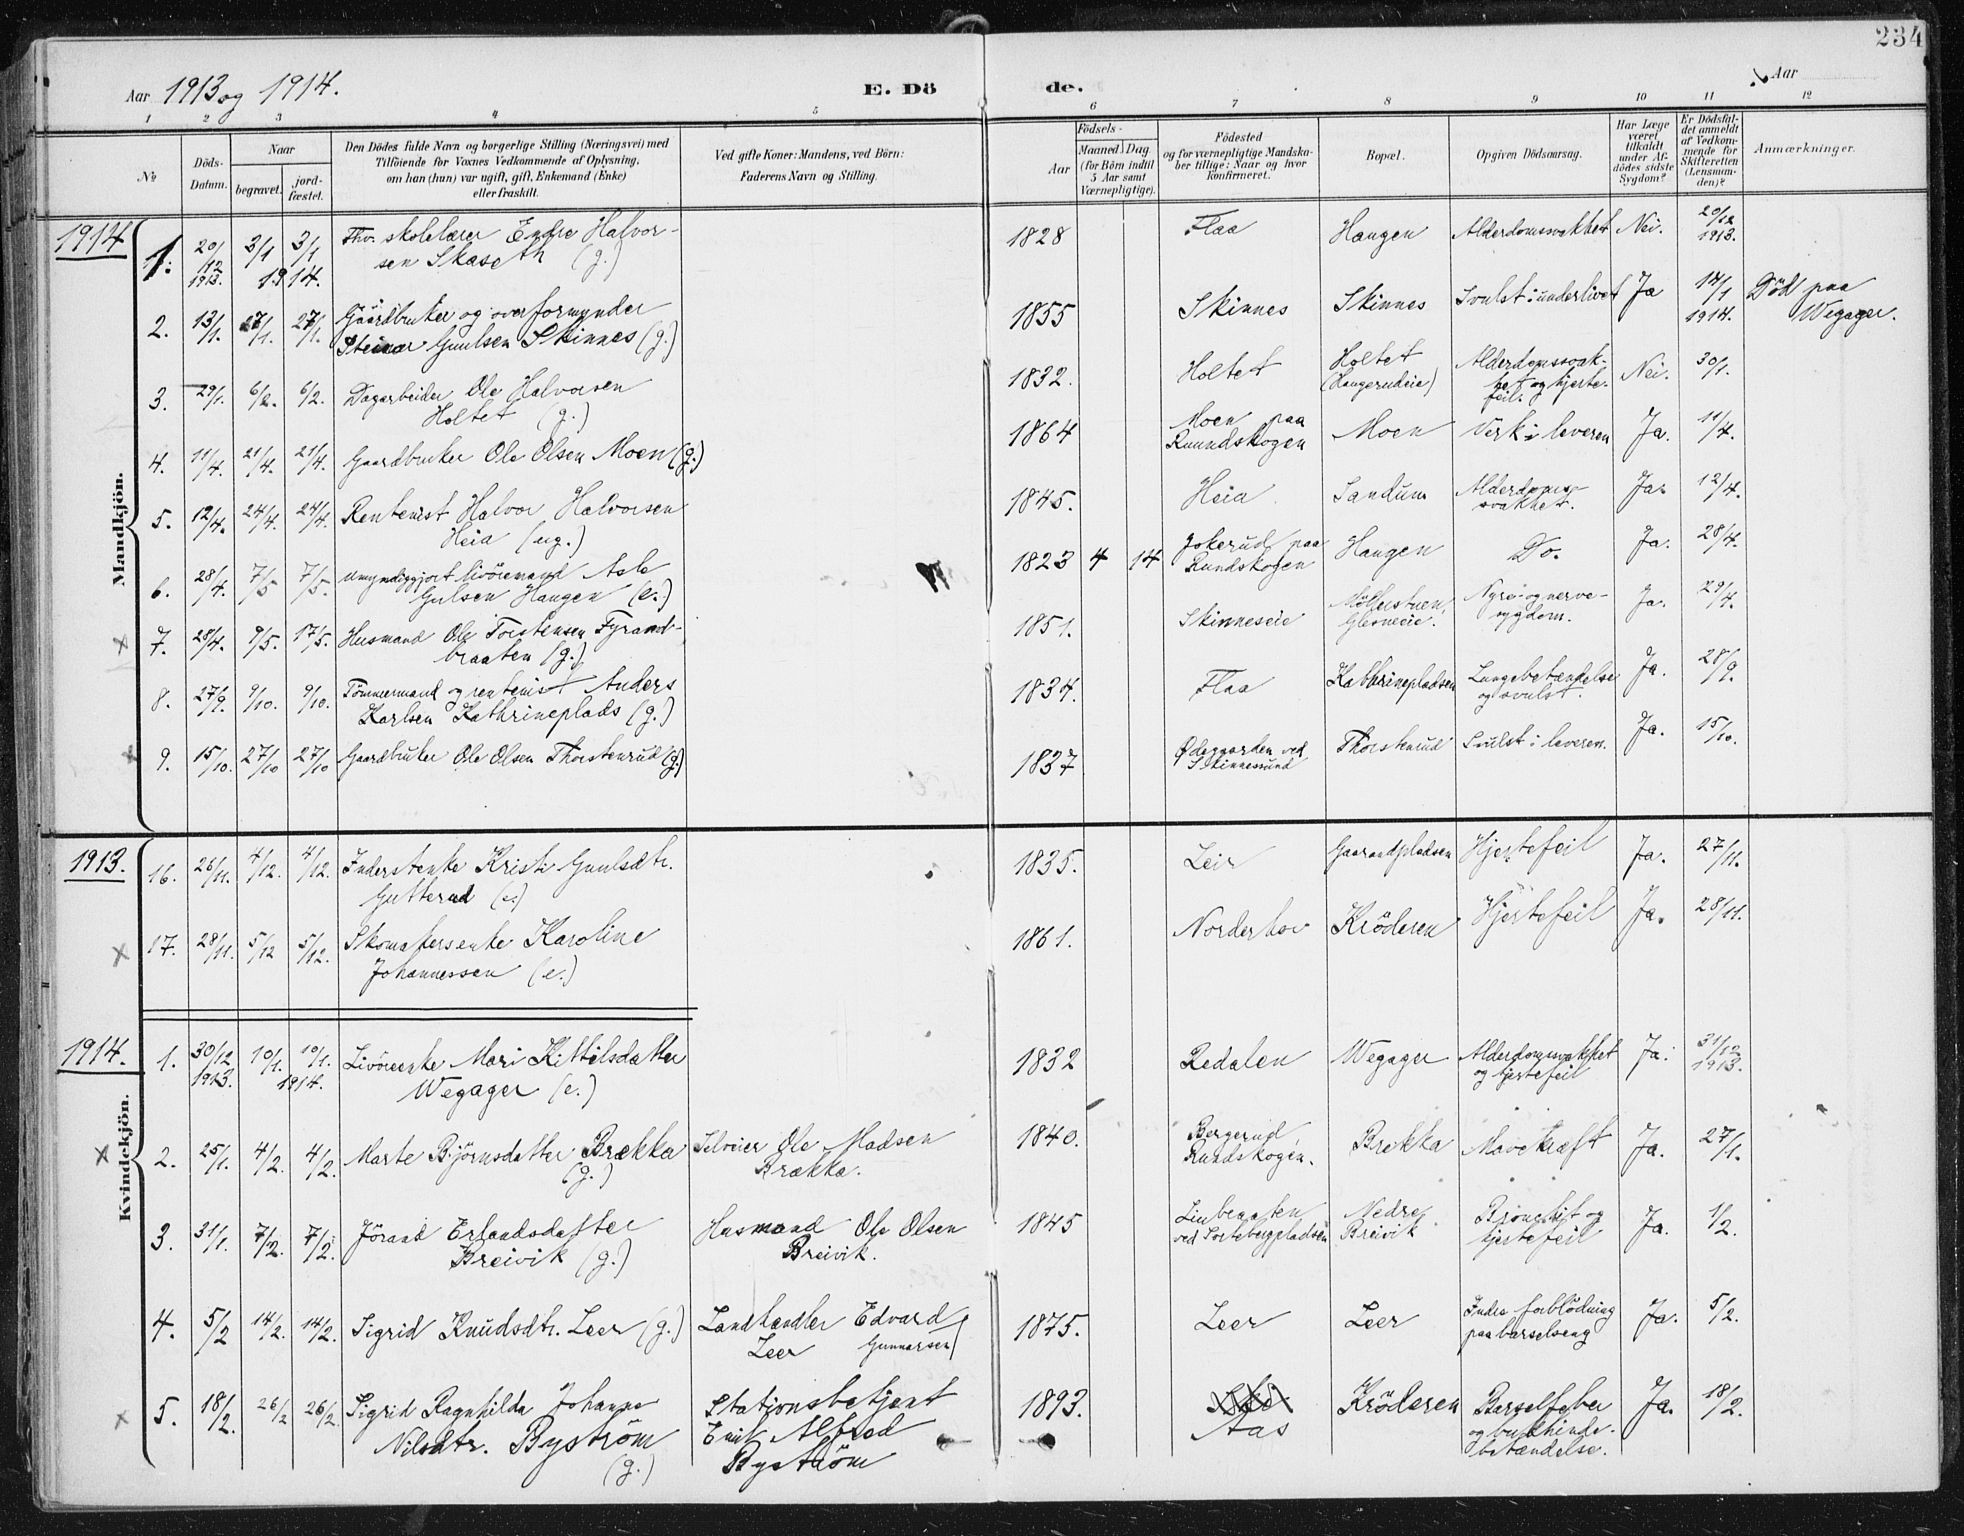 234
Aar 1913 og 1914.
E. Dö
de.
Aar
1 2 3 4 5 6 7 8 9 10 11 12
No
Döds-Datum.
Naar
begravet.
jord-fæstet.
Den Dödes fulde Navn og borgerlige Stilling (Næringsvei) med
Tilföiende for Voxnes Vedkommende af Oplysning,
om han (hun) var ugift, gift, Enkemand (Enke)
eller fraskilt.
Ved gifte Koner: Mandens, ved Börn:
Faderens Navn og Stilling.
Födsels-
Aar
Maaned Dag
(for Börn indtil
5 Aar samt
Værnepligtige).
Födested
og for værnepligtige Mandska-
ber tillige: Naar og hvor
konfirmeret.
Bopæl.
Opgiven Dödsaarsag.
Har Læge
været
tilkaldt
under Af-
dödes sidste
Sygdom?
Er Dödsfal-
det anmeldt
af Vedkom-
mende for
Skifteretten
(Lensman-
den)?
Anmærkninger.
Mandkjön.
1914
1. 20/12 1913. 3/1 3/1 1914. Fhv. skolelærer Endre Halvor-
sen Skaseth (g.) 1828 Flaa Haugen Alderdomssvakhet Nei. 20/12 1913.
2. 13/1. 27/1. 27/1. Gaardbruker og overformynder
Steinar Guulsen Skinnes (g.) 1855 Skinnes Skinnes Svulst i underlivet Ja 14/1 1914. Död paa
Wegager.
3. 29/1. 6/2. 6/2. Dagarbeider Ole Halvorsen
Holtet (g.) 1832. Holtet Holtet
(Haugerudeie) Alderdomssvak-
het og hjerte-
feil. Nei. 30/1.
4. 11/4. 21/4. 21/4. Gaardbruker Ole Olsen Moen (g.) 1864 Moen paa
Ruundskogen Moen Verk i leveren Ja. 11/4.
5. 12/4. 24/4. 24/4. Rentenist Halvor Halvorsen
Heia (ug.) 1845. Heia Sandum Alderdoms-
svakhet. Ja. 12/4.
6. 28/4. 7/5 7/5. Umyndiggjort livöremand Asle
Gulsen Haugen (e.) 1823 4 14 Jokerud paa
Rundskogen Haugen Do. Ja. 28/4.
7. 28/4. 9/5. 17/5. Husmand Ole Torstensen Fyrand-
braaten (g.) 1851. Skinneseie Möllerstuen,
Glesneeie. Nyre- og nerve-
sygdom. Ja. 29/4.
8. 27/9. 9/10. 9/10. Tömmermand og rentenist Anders
Karlsen Kathrineplads (g.) 1834. Flaa Kathrinepladsen Lungebetændelse
og svulst. Ja. 28/9.
9. 15/10. 27/10 27/10 Gaardbruker Ole Olsen Thorstenrud (g.) 1837 Ødegaarden ved
Skinnessund Thorstenrud Svulst i leveren. Ja. 15/10.
1913.
16. 26/11. 4/12. 4/12. Inderstenke Kristi Guulsdtr.
Gutterud (e.) 1835. Leir Gaarandpladsen Hjertefeil Ja. 27/11.
17. 28/11. 5/12 5/12. Skomakersenke Karoline
Johannessen (e.) 1861. Norderhov Kröderen Hjertefeil Ja. 28/11.
Kvindekjön.
1914.
1. 30/12 1913. 10/1. 10/1. 1914. Livöreenke Mari Kittilsdatter
Wegager (e.) 1832 Redalen Wegager Alderdomssvakhet
og hjertefeil Ja. 31/12 1913.
2. 25/1. 4/2. 4/2. Marte Björnsdatter Brækka
(g.) Selveier Ole Madsen
Brækka. 1840. Bergerud,
Rundskogen. Brekka Mavekræft Ja. 27/1.
3. 31/1. 7/2. 7/2. Jörand Erlandsdatter
Breivik (g.) Husmand Ole Olsen
Breivik. 1845 ved Sorteberg­pladsen Nedre
Breivik Bronchit og
hjertefeil Ja. 1/2.
4. 5/2 14/2. 14/2. Sigrid Knudsdtr. Leer (g.) Landhandler Edvard
Leer Gunnarsen 1875. Leer Leer Indre forblödning
paa barselseng Ja. 5/2.
5. 18/2. 26/2 26/2. Sigrid Ragnhilda Johanne
Nilsdtr. Byström
(g.) Stationsbetjent
Emil Alfred
Byström 1893. Aas Kröderen Barselfeber
og bukhinde-
betændelse. Ja. 18/2.